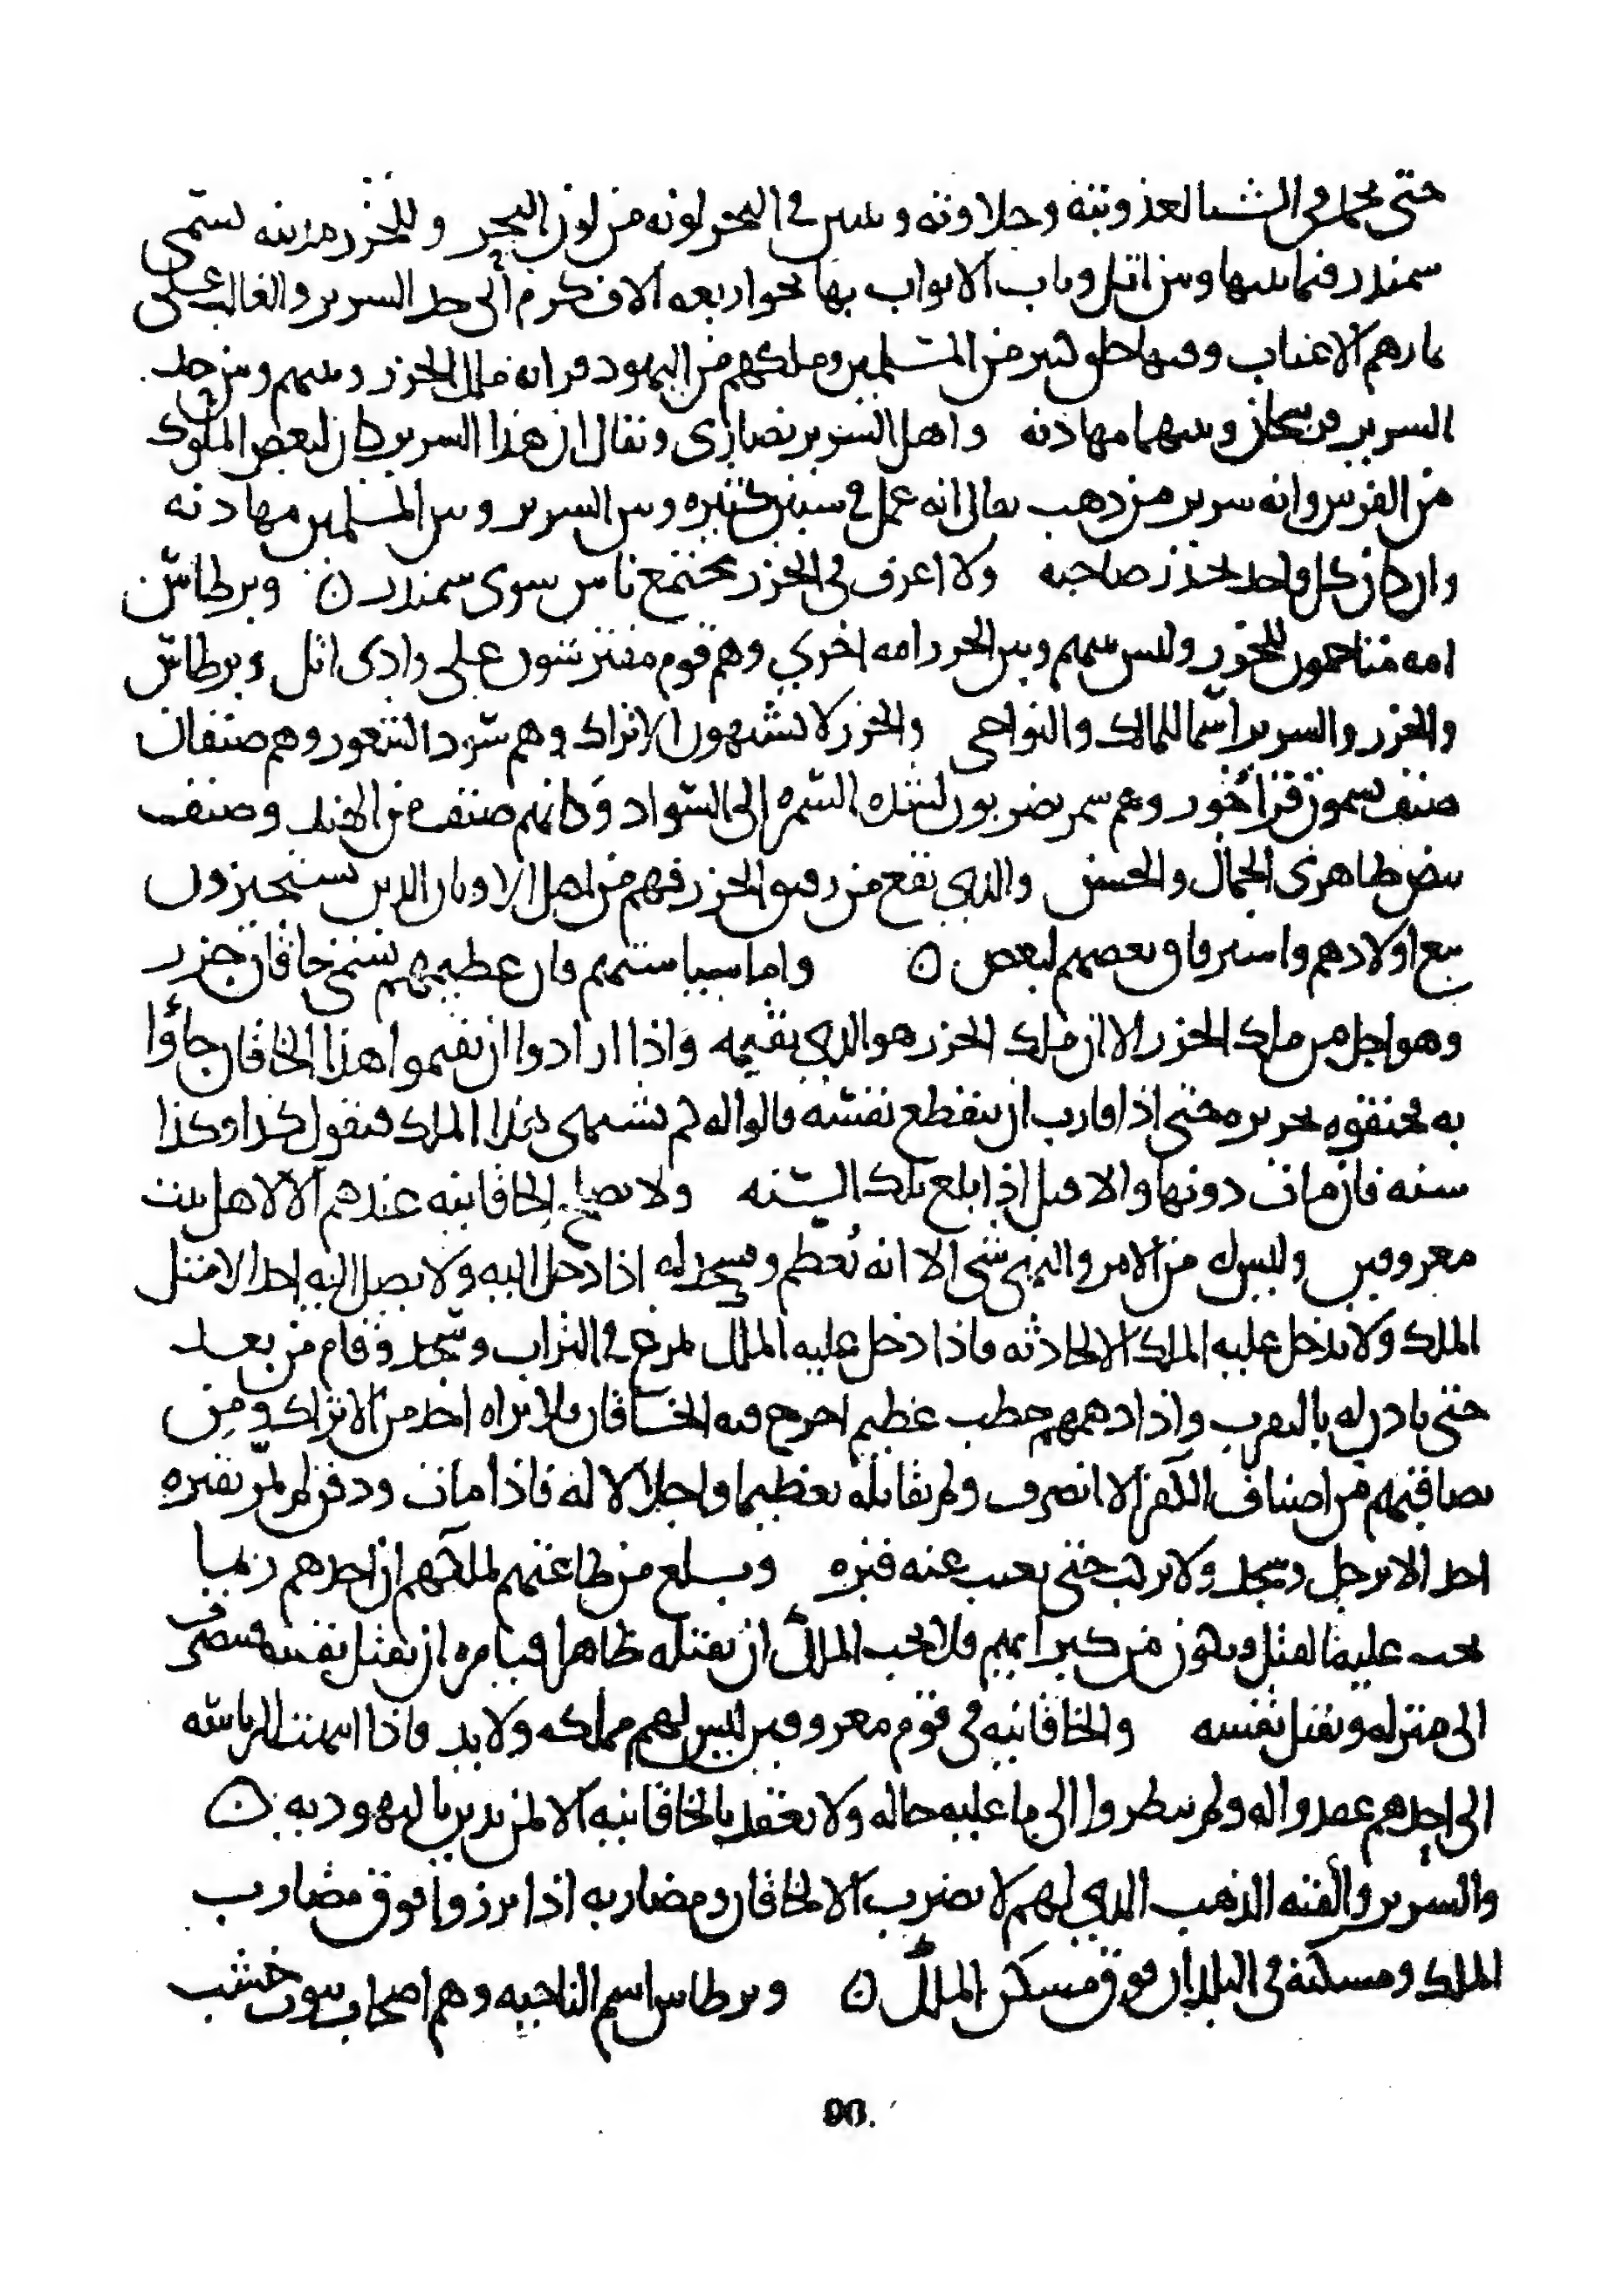 حتى يجمد في الشتا لعذوبته وحلاوته ويتبين في البحر لونه من لون البحر وللخزر مدينه تسمى
سمندر فيما بينها وبين اتل وباب الابواب بها نحو اربعه الاف كرم الى حد السرير والغالب على
ثمارهم الاعناب وفيها خلق كثير من المسلمين وملكهم من اليهود قرابه ملك الخزر وبينهم وبين حد
السرير فرسخان وبينهما مهادنه واهل السرير نصارى ويقال ان هذا السرير كان لبعض الملوك
من الفرس وانه سرير من ذهب يقال انه عمل في سنين كثيره وبين السرير وبين المسلمين مهادنه
وان كان كل واحد يحذر صاحبه ولا اعرف في الخزر مجتمع ناس سوى سمندر ن وبرطاس
امه متاخمون للخزر وليس بينهم وبين الخزر امه اخرى وهم قوم مفترشون على وادى اتل وبرطاس
والخزر والسرير اسما للمالك والنواحى والخزر لا يشبهون الاتراك وهم سود الشعور وهم صنفان
صنف يسمون قراخزر وهم سمر يضربون لشده السمره الى السواد وكانهم صنف من الهند وصنف
بيض ظاهرى الجمال والحسن والذي يقع من رقيق الخزر فهم من اهل الاوثان الذين يستجيزون
بيع اولادهم واسترقاق بعضهم لبعض ن واما سياستهم فان عظيمهم يسمى خاقان خزر
وهو اجل من ملك الخزر الا ان ملك الخزر هو الذي يقيمه واذا ارادوا ان يقيموا هذا الخاقان جاؤا
به فيخنقوه بحريره حتى اذا قارب ان ينقطع نفسه قالوا له كم تشتهى مده الملك فيقول كذا وكذا
سنه فان مات دونها والا قتل اذا بلغ تلك السنه ولا تصلح الخاقانيه عندهم الا لاهل بيت
معروفين وليس له من الامر والنهى شى الا انه يُعظم ويسجد له اذا دخل اليه ولا يصل اليه احد الا مثل
الملك ولا يدخل عليه الملك الا لحادثه فاذا دخل عليه الملك تمرغ في التراب وسجد وقام من بعد
حتى ياذن له بالتقرب واذا دهمهم خطب عظيم اخرج فيه الخاقان فلا يراه احد من الاتراك ومن
يصاقبهم من اصناف الكفر الا انصرف ولم يقاتله تعظيما واجلالا له فاذا مات ودفن لم يمر بقبره
احد الا ترجل وسجد ولا يركب حتى يغيب عنه قبره ويبلغ من طاعتهم لملكهم ان احدهم ربما
يجب عليه القتل ويكون من كبرايهم فلا يحب الملك ان يقتله ظاهرا فيامره ان يقتل نفسه فينصرف
الى منزله ويقتل نفسه والخاقانيه فى قوم معروفين ليس لهم مملكه ولا يد فاذا انتهت الرياسه
الى احدهم عقدوا له ولم ينظروا الى ما عليه حاله ولا يعقد بالخاقانيه الا لمن يدين باليهوديه ن
والسرير والقبه الذهب الذي لهم لا يضرب الا للخاقان ومضاربه اذا برزوا فوق مضارب
الملك ومسكنه في البلد ارفع من مسكن الملك ن وبرطاس اسم الناحيه وهم اصحاب بيوت خشب
90.